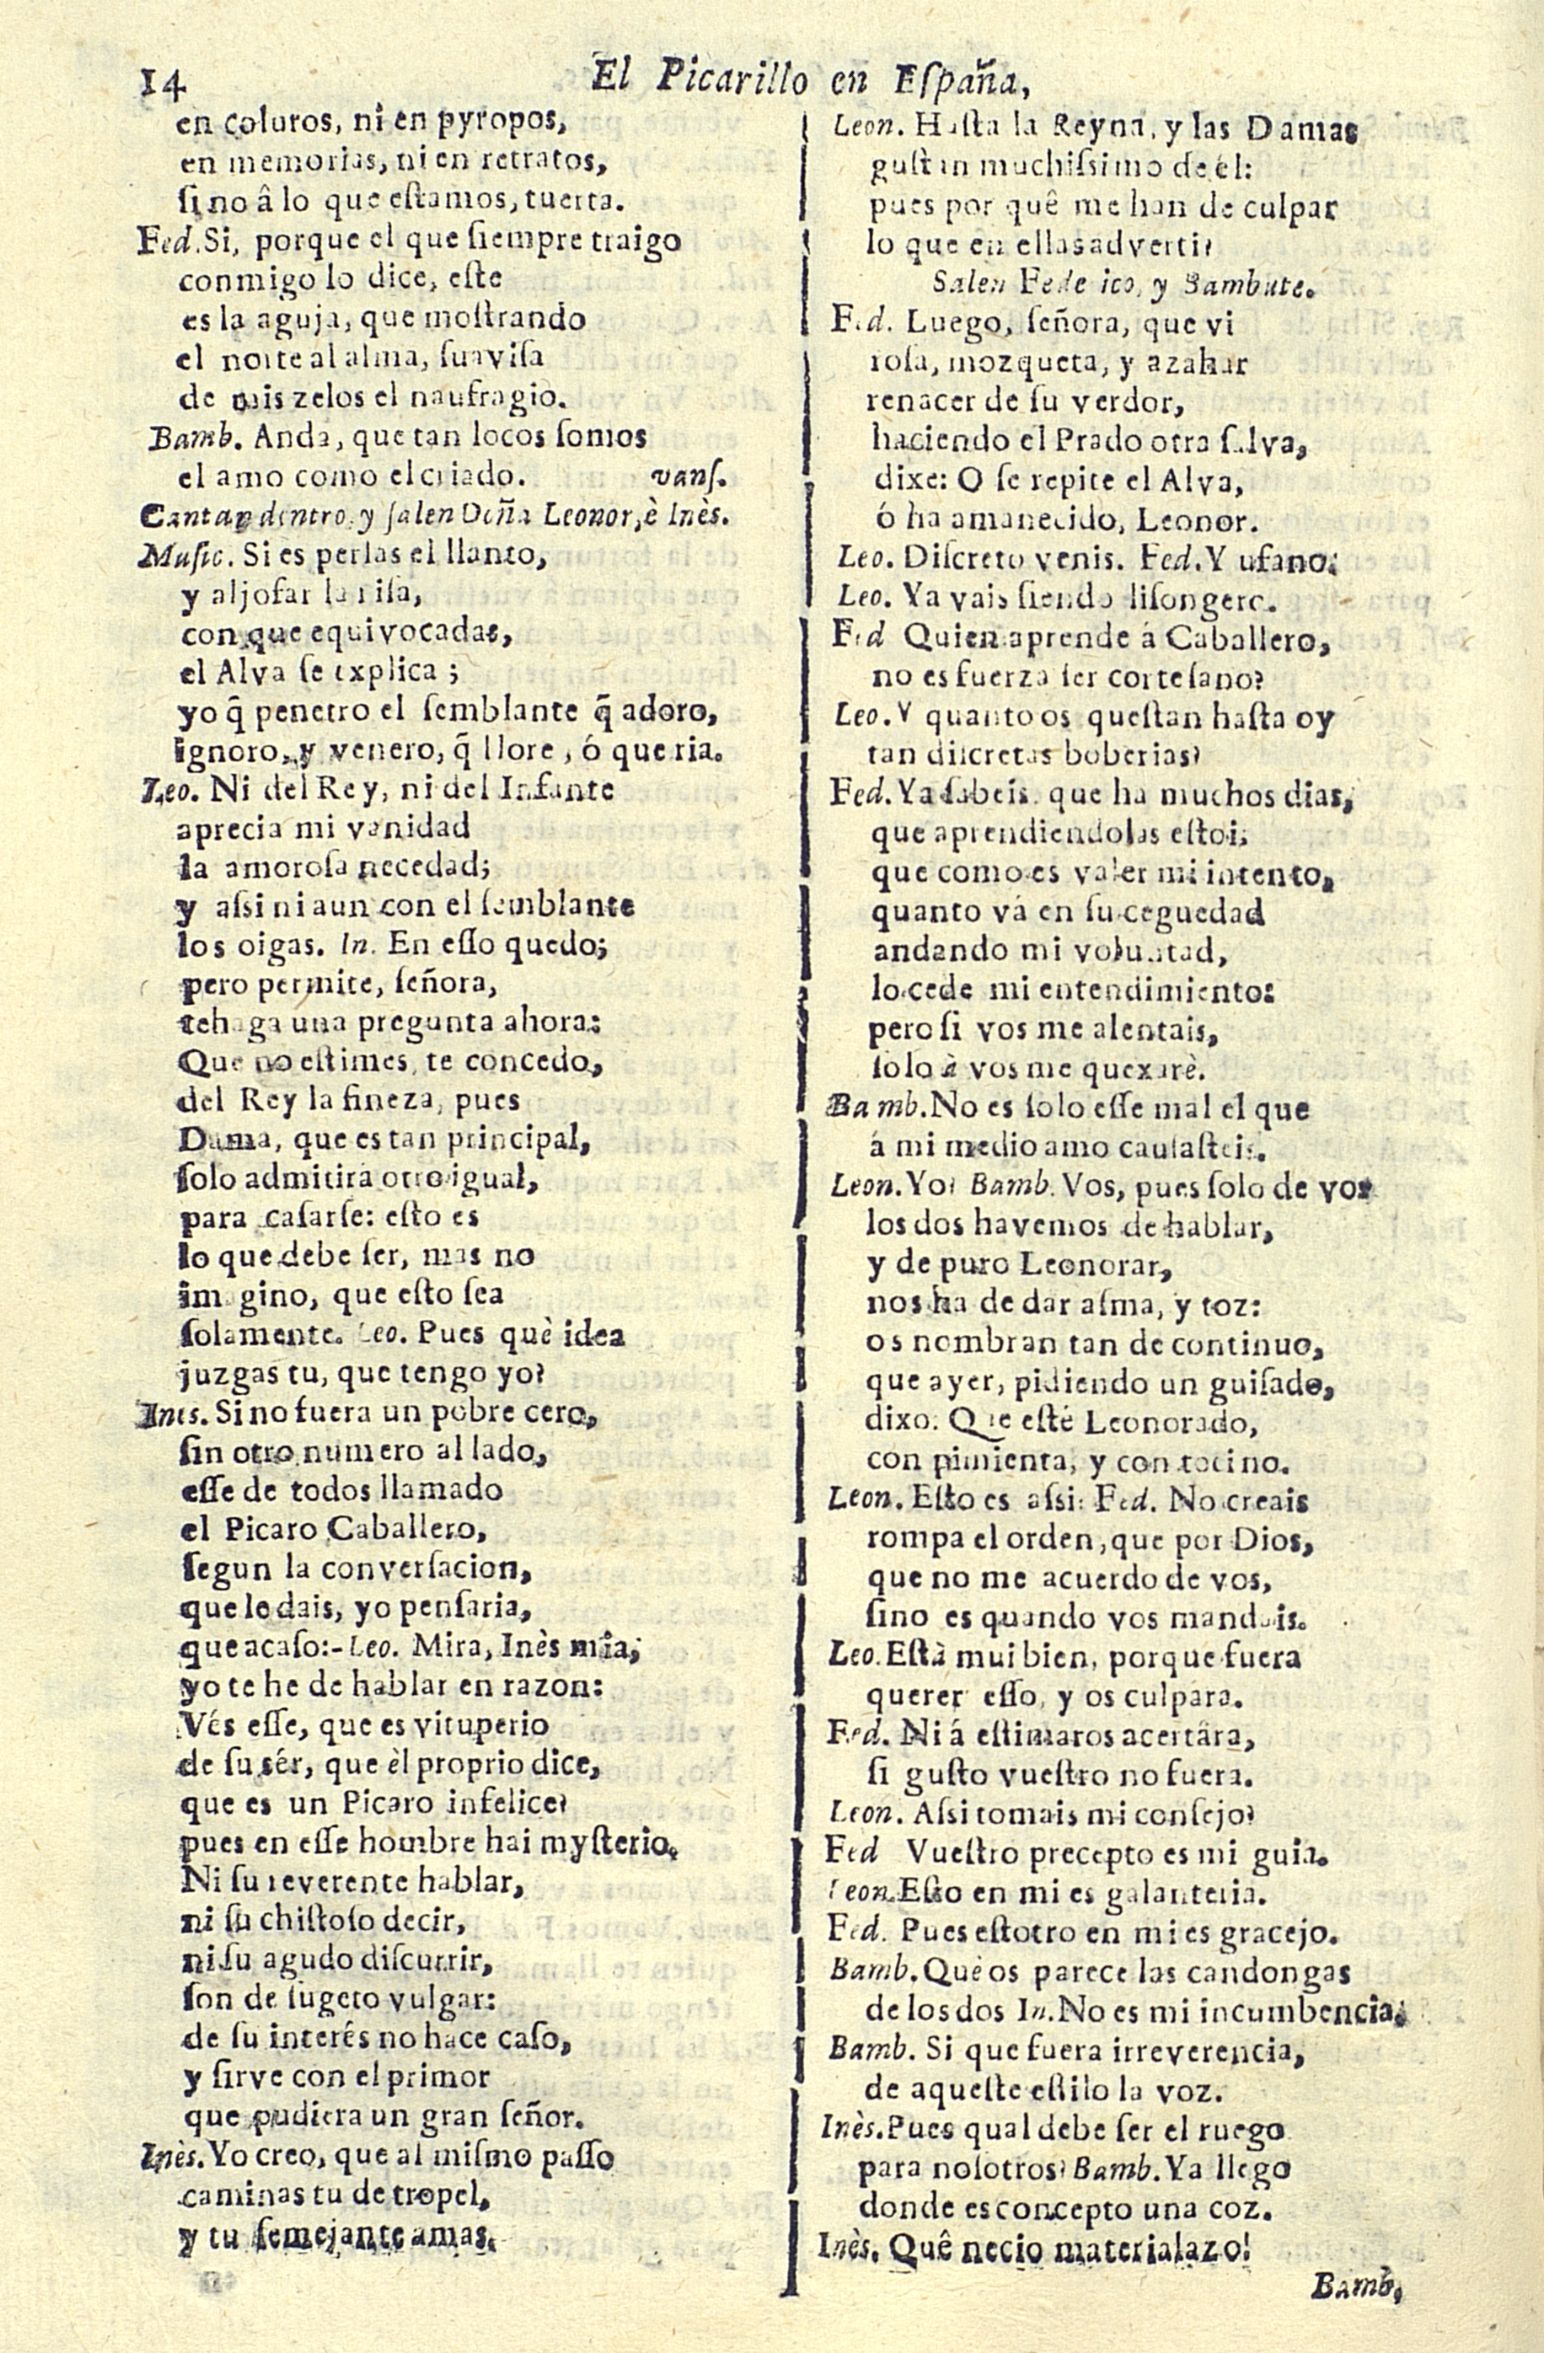 14
El Picarillo en Eſpaña,
en coluros, ni en pyropos,
en memorias, ni en retratos,
ſino â lo que eſtamos, tuerta.
Fed. Si, porque el que ſiempre traigo
conmigo lo dice, eſte
es la aguja, que moſtrando
el norte al alma, ſuaviſa
de mis zelos el naufragio.
Bamb. Anda, que tan locos ſomos
el amo como el criado. vanſ.
Cantan dentro, y ſalen Doña Leonor, è Inès.
Muſic. Si es perlas el llanto,
y aljofar la riſa,
con que equivocadas,
el Alva ſe explica;
yo q̃ penetro el ſemblante q̃ adoro,
ignoro, y venero, q̃ llore, ó que ria.
Leo. Ni del Rey, ni del Infante
aprecia mi vanidad
la amoroſa necedad;
y aſsi ni aun con el ſemblante
los oigas. In. En eſſo quedo;
pero permite, ſeñora,
te haga una pregunta ahora:
Que no eſtimes, te concedo,
del Rey la fineza, pues
Dama, que es tan principal,
ſolo admitirá otro igual,
para caſarſe: eſto es
lo que debe ſer, mas no
imagino, que eſto ſea
ſolamente. Leo. Pues què idea
juzgas tu, que tengo yo?
Ines. Si no fuera un pobre cero,
ſin otro numero al lado,
eſſe de todos llamado
el Picaro Caballero,
ſegun la converſacion,
que le dais, yo penſaria,
que acaſo:- Leo. Mira, Inès mia,
yo te he de hablar en razon:
Vés eſſe, que es vituperio
de ſu sér, que èl proprio dice,
que es un Picaro infelice?
pues en eſſe hombre hai myſterio.
Ni ſu reverente hablar,
ni ſu chiſtoſo decir,
ni ſu agudo diſcurrir,
ſon de ſugeto vulgar:
de ſu interés no hace caſo,
y ſirve con el primor
que pudiera un gran ſeñor.
Inès. Yo creo, que al miſmo paſſo
caminas tu de tropel,
y tu ſemejante amas.
Leon. Haſta la Reyna, y las Damas
guſtan muchiſsimo de él:
pues por quê me han de culpar
lo que en ellas adverti?
Salen Federico, y Bambute.
Fed. Luego, ſeñora, que vi
roſa, mozqueta, y azahar
renacer de ſu verdor,
haciendo el Prado otra ſalva,
dixe: O ſe repite el Alva,
ó ha amanecido, Leonor.
Leo. Diſcreto venis. Fed. Y ufano:
Leo. Ya vais ſiendo liſongero.
Fed Quien aprende á Caballero,
no es fuerza ſer corteſano?
Leo. Y quanto os queſtan haſta oy
tan diſcretas boberias?
Fed. Ya ſabeis que ha muchos dias,
que aprendiendolas eſtoi,
que como es valer mi intento,
quanto vá en ſu ceguedad
andando mi voluntad,
lo cede mi entendimiento:
pero ſi vos me alentais,
ſolo à vos me quexarè.
Bamb. No es ſolo eſſe mal el que
á mi medio amo cauſaſteis.
Leon. Yo? Bamb. Vos, pues ſolo de vos
los dos havemos de hablar,
y de puro Leonorar,
nos ha de dar aſma, y toz:
os nombran tan de continuo,
que ayer, pidiendo un guiſado,
dixo: Que eſtè Leonorado,
con pimienta, y con tocino.
Leon. Eſto es aſsi: Fed. No creais
rompa el orden, que por Dios,
que no me acuerdo de vos,
ſino es quando vos mandais.
Leo. Eſtà mui bien, porque fuera
querer eſſo, y os culpára.
Fed. Ni á eſtimaros acertára,
ſi guſto vueſtro no fuera.
Leon. Aſsi tomais mi conſejo?
Fed Vueſtro precepto es mi guia.
Leon. Eſſo en mi es galanteria.
Fed. Pues eſtotro en mi es gracejo.
Bamb. Què os parece las candongas
de los dos In. No es mi incumbencia;
Bamb. Si que fuera irreverencia,
de aqueſte eſtilo la voz.
Inès. Pues qual debe ſer el ruego
para noſotros? Bamb. Ya llego
donde es concepto una coz.
Inès. Quê necio materialazo!
Bamb,